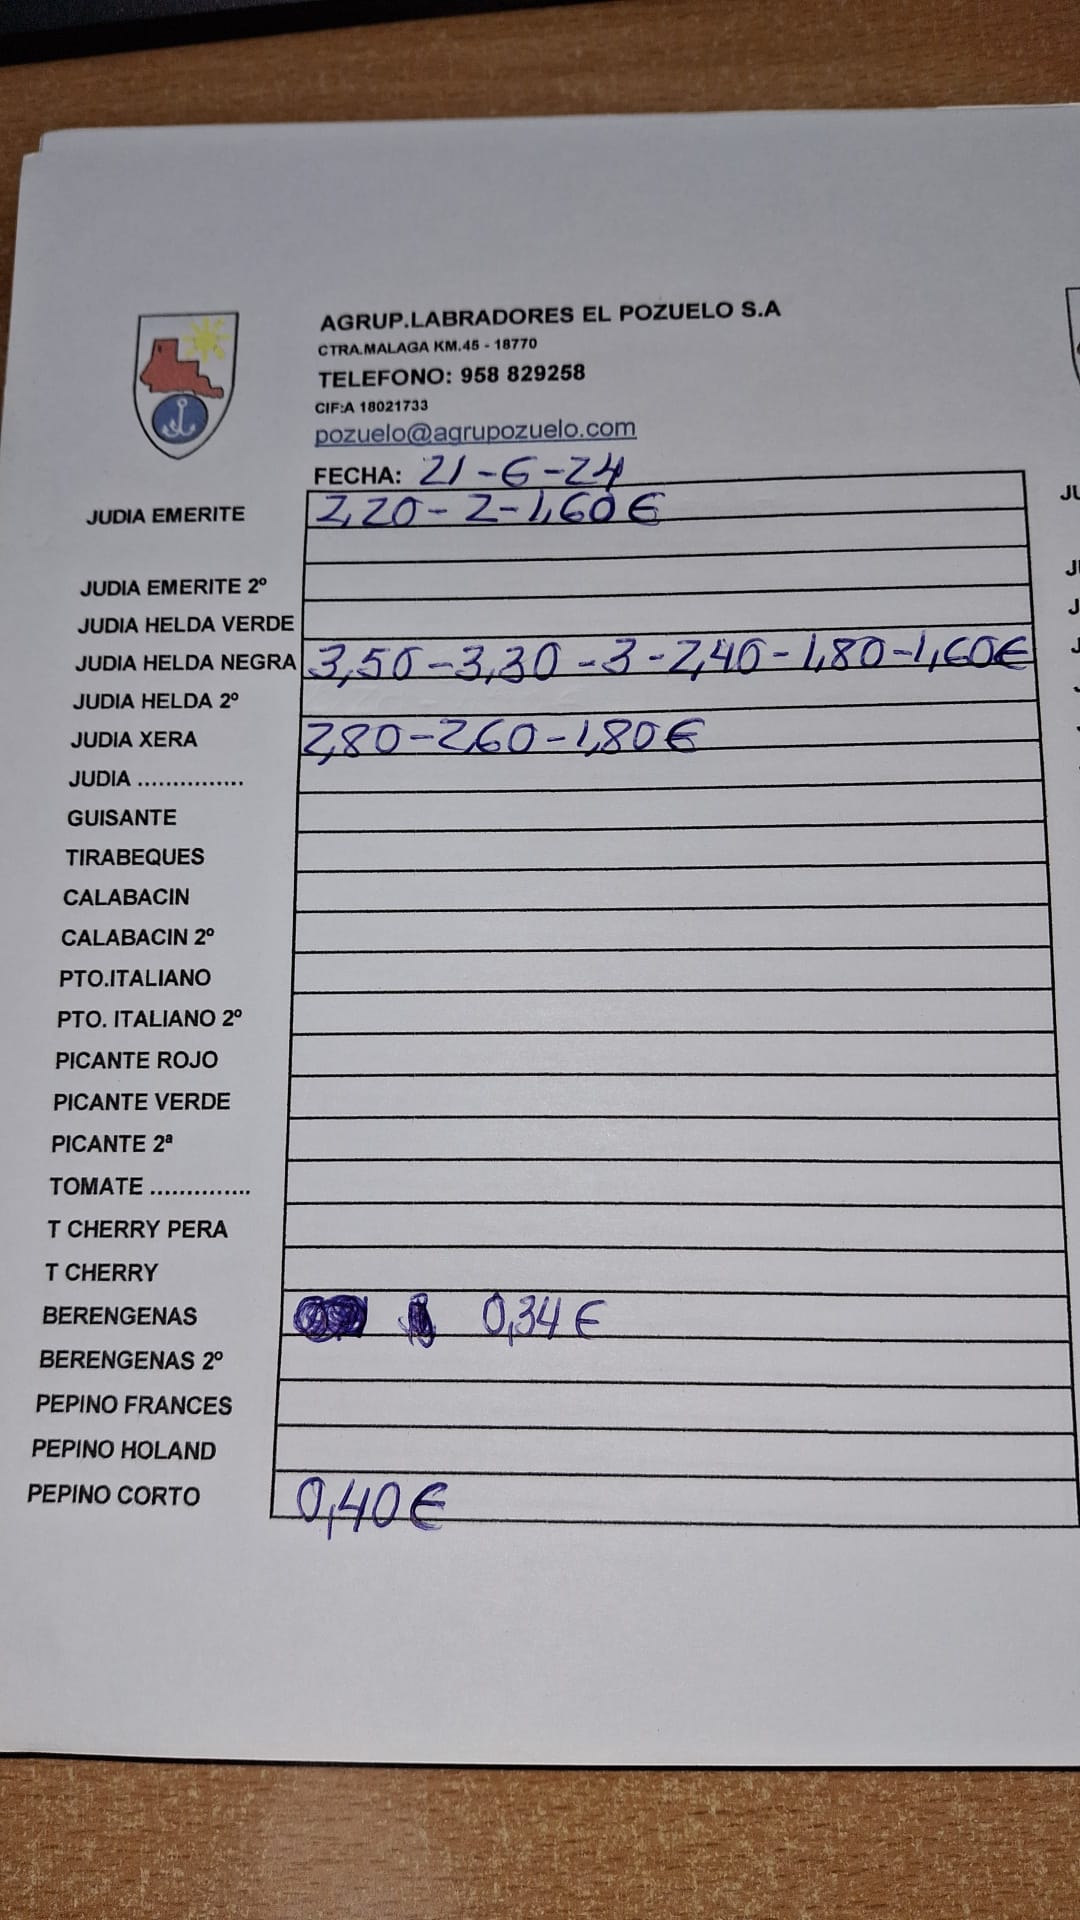 AGRUP.LABRADORES EL POZUELO S.A
CTRA.MALAGA KM.45 - 18770
TELEFONO: 958 829258
CIF:A 18021733
pozuelo@agrupozuelo.com
FECHA: 21-6-24
JUDIA EMERITE 2,20-2-1,60€
JUDIA EMERITE 2º
JUDIA HELDA VERDE
JUDIA HELDA NEGRA 3,50-3,30-3-2,40-1,80-1,60€
JUDIA HELDA 2º
JUDIA XERA 2,80-2,60-1,80€
JUDIA ...............
GUISANTE
TIRABEQUES
CALABACIN
CALABACIN 2º
PTO.ITALIANO
PTO. ITALIANO 2º
PICANTE ROJO
PICANTE VERDE
PICANTE 2ª
TOMATE ..............
T CHERRY PERA
T CHERRY
BERENGENAS 0,34€
BERENGENAS 2º
PEPINO FRANCES
PEPINO HOLAND
PEPINO CORTO 0,40€